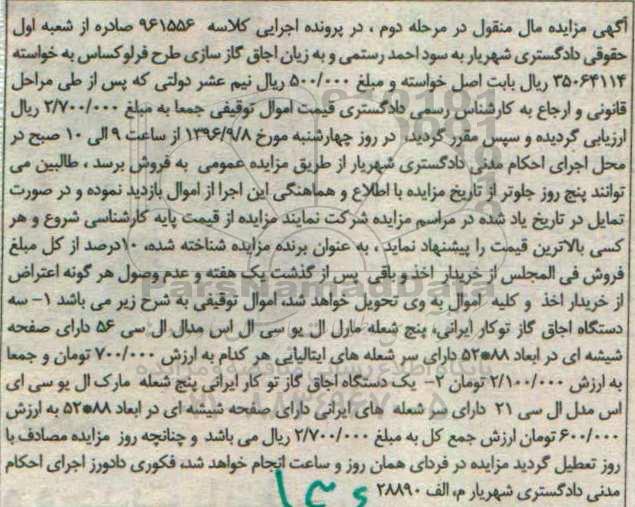 آگهی مزایده مال منقول در مرحله دوم ، در پرونده اجرایی کلاسه ۹۶۱۵۵۶ صادره از شعبه اول
حقوقی دادگستری شهریار به سود احمد رستمی و به زیان اجاق گاز سازی طرح فرلوکساس به خواسته
۳۵۰۶۴۱۱۴ ریال بابت اصل خواسته و مبلغ ۵۰۰/۰۰۰ ریال نیم عشر دولتی که پس از طی مراحل
قانونی و ارجاع به کارشناس رسمی دادگستری قیمت اموال توقیفی جمعا به مبلغ ۲/۷۰۰/۰۰۰ ریال
ارزیابی گردیده و سپس مقرر گردید، در روز چهارشنبه مورخ ۱۳۹۶/۹/۸ از ساعت ۹ الی ۱۰ صبح در
محل اجرای احکام مدنی دادگستری شهریار از طریق مزایده عمومی به فروش برسد ، طالبین می
توانند پنج روز جلوتر از تاریخ مزایده با اطلاع و هماهنگی این اجرا از اموال بازدید نموده و در صورت
تمایل در تاریخ یاد شده در مراسم مزایده شرکت نمایند مزایده از قیمت پایه کارشناسی شروع و هر
کسی بالاترین قیمت را پیشنهاد نماید ، به عنوان برنده مزایده شناخته شده، ۱۰درصد از کل مبلغ
فروش فی المجلس از خریدار اخذ و باقی پس از گذشت یک هفته و عدم وصول هر گونه اعتراض
از خریدار اخذ و کلیه اموال به وی تحویل خواهد شد، اموال توقیفی به شرح زیر می باشد ۱- سه
دستگاه اجاق گاز توکار ایرانی، پنج شعله مارل ال یو سی ال اس مدال ال سی ۵۶ دارای صفحه
شیشه ای در ابعاد ۸۸*۵۲ دارای سر شعله های ایتالیایی هر کدام به ارزش ۷۰۰/۰۰۰ تومان و جمعا
به ارزش ۲/۱۰۰/۰۰۰ تومان ۲- یک دستگاه اجاق گاز تو کار ایرانی پنج شعله مارک ال یو سی ای
اس مدل ال سی ۲۱ دارای سر شعله های ایرانی دارای صفحه شیشه ای در ابعاد ۸۸*۵۲ به ارزش
۶۰۰/۰۰۰ تومان ارزش جمع کل به مبلغ ۲/۷۰۰/۰۰۰ ریال می باشد و چنانچه روز مزایده مصادف با
روز تعطیل گردید مزایده در فردای همان روز و ساعت انجام خواهد شد، فکوری دادورز اجرای احکام
مدنی دادگستری شهریار م، الف ۲۸۸۹۰
ParsNamadData